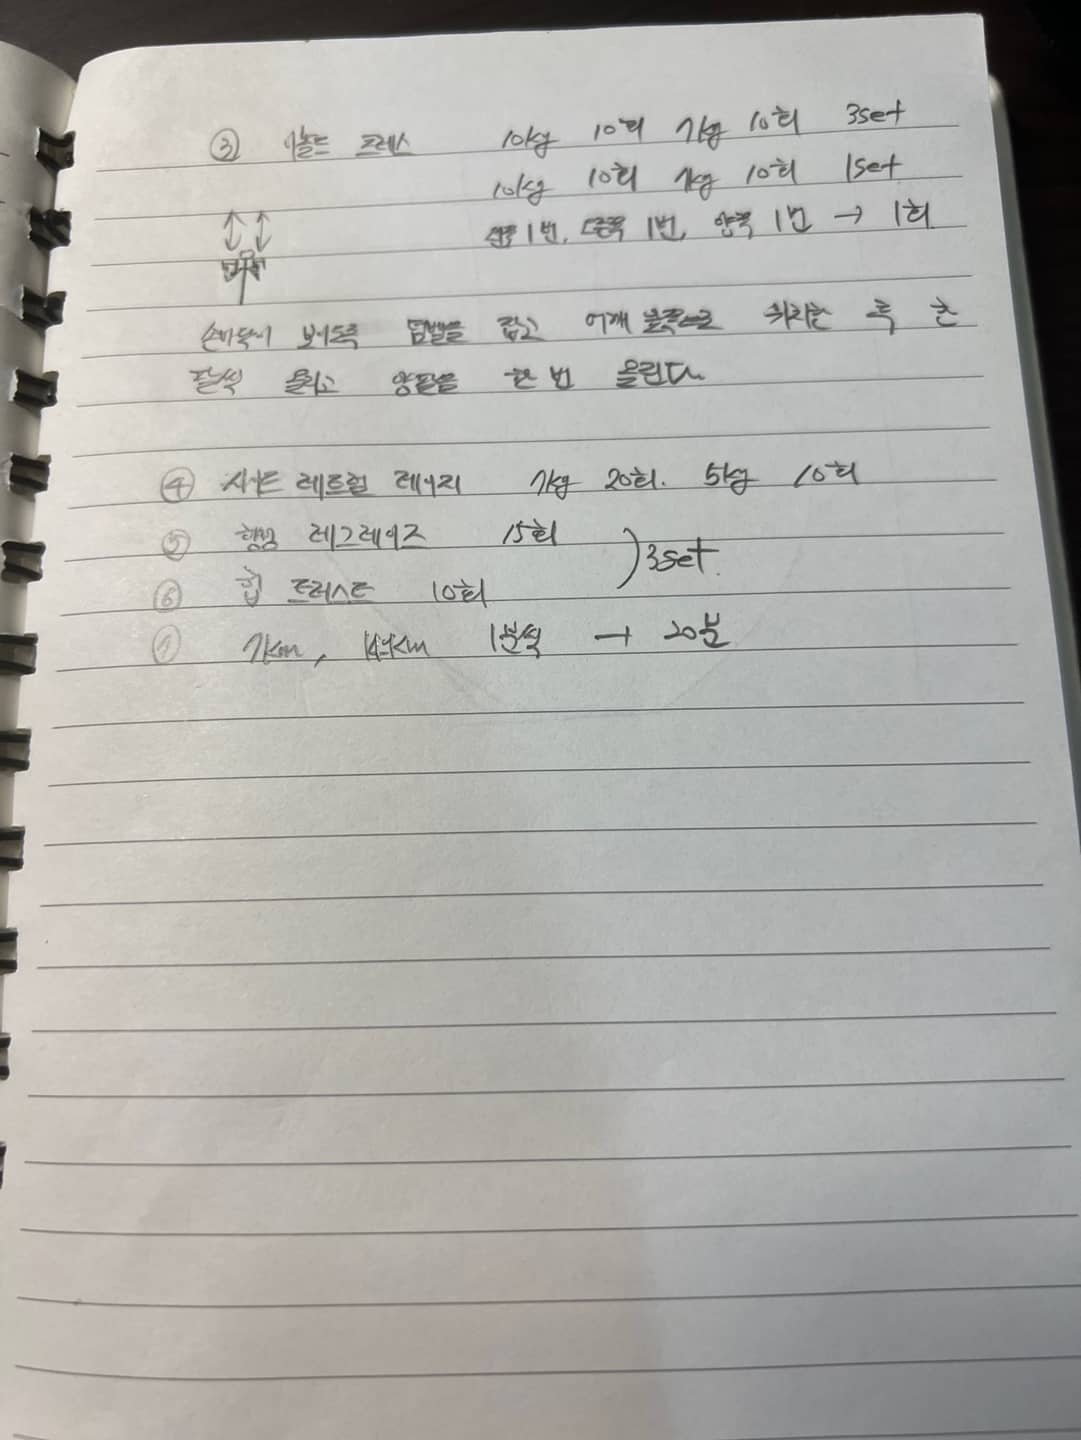 ③ 아놀드 프레스 10kg 10회 7kg 10회 3set
10kg 10회 7kg 10회 1set
1번, 1번, 양쪽 1번 → 1회
손바닥이 보이도록 덤벨을 잡고 어깨 위치한 후 한
팔씩 올리고 양팔을 한 번 올린다.
④ 레터럴 레이즈 7kg 20회. 5kg 10회
⑤ 행잉 레그레이즈 15회
⑥ 힙 트러스트 10회
3set.
⑦ 7km, 1분씩 → 20분